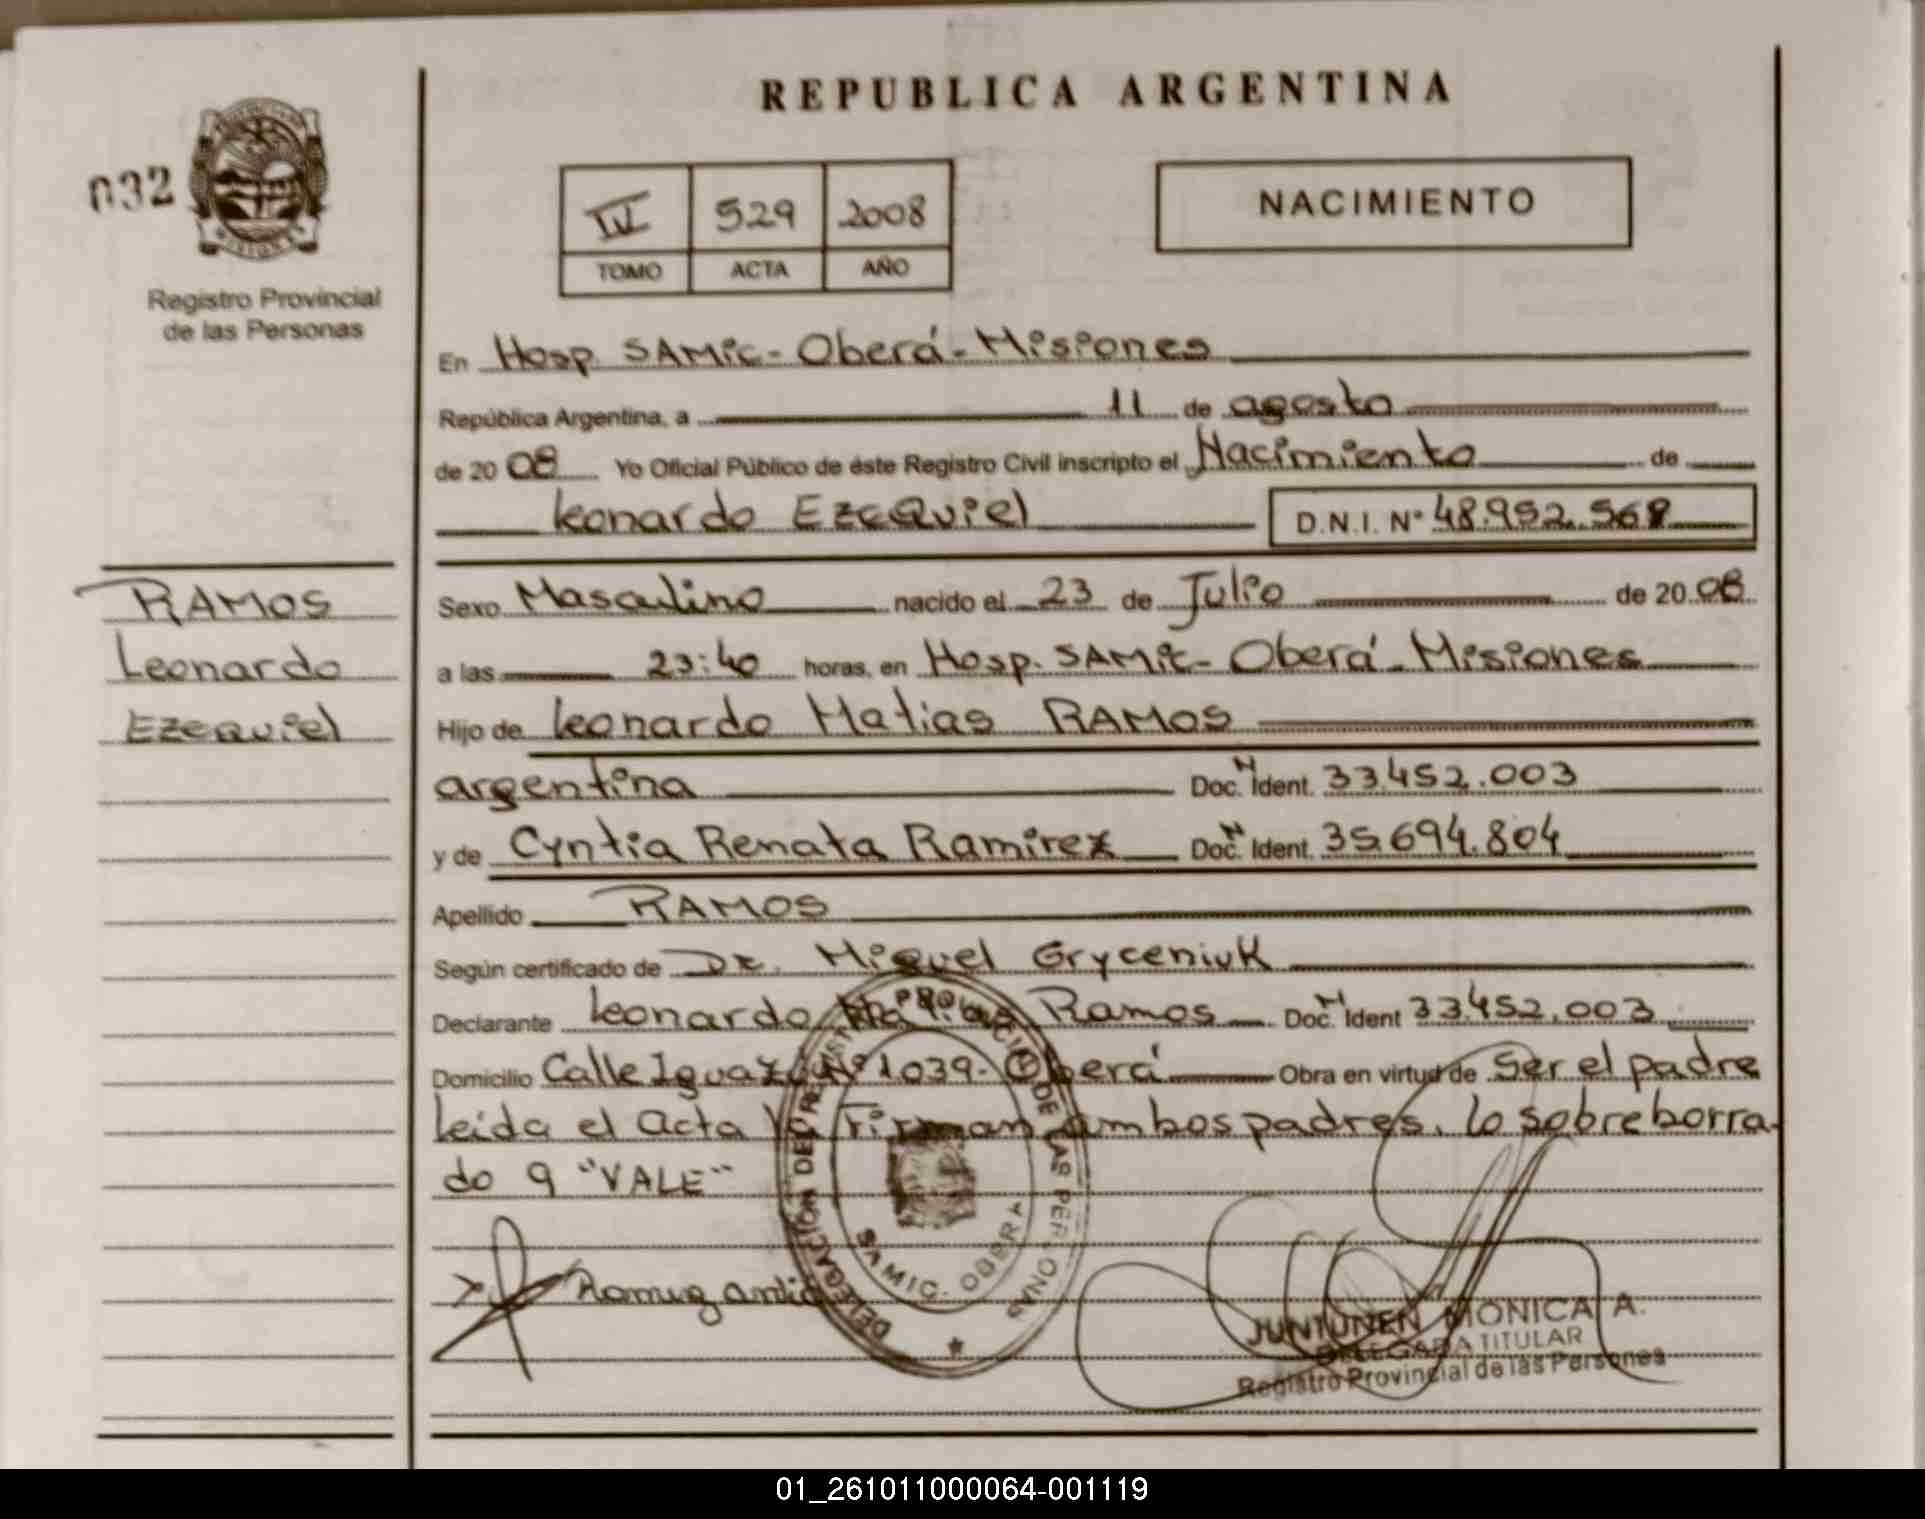 REPUBLICA ARGENTINA
032
IV 529 2008
TOMO ACTA AÑO
NACIMIENTO
Registro Provincial
de las Personas
En Hosp. SAMic - Oberá - Misiones
República Argentina, a 11 de agosto
de 20 08 Yo Oficial Público de éste Registro Civil inscripto el Nacimiento de
Leonardo Ezequiel D.N.I. Nº 48.952.568
RAMOS
Leonardo
Ezequiel
Sexo Masculino nacido el 23 de Julio de 20 08
a las 23:40 horas, en Hosp. SAMic - Oberá - Misiones
Hijo de Leonardo Matias RAMOS
argentina Doc. N Ident. 33.452.003
y de Cyntia Renata Ramirez Doc. N Ident. 35.694.804
Apellido RAMOS
Según certificado de DR. Miguel Gryceniuk
Declarante Leonardo Matias Ramos Doc. N Ident 33.452.003
Domicilio Calle Iguazú Nº 1039 - Oberá Obra en virtud de Ser el padre
leída el Acta la Firman ambos padres. lo sobreborra-
do 9 "VALE"
DELEGACIÓN DEL REGISTRO PROVINCIAL DE LAS PERSONAS
SAMIC. OBERA
JUNTUNEN MONICA A.
DELEGADA TITULAR
Registro Provincial de las Personas
01_261011000064-001119